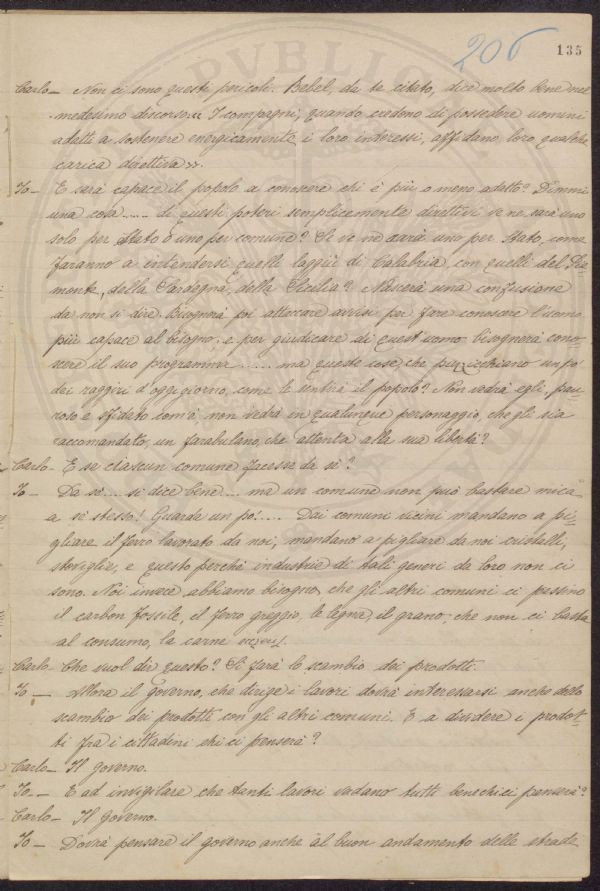 206
135
Carlo — Non ci sono questi pericoli. Bebel, da te citato, dice molto bene nel
medesimo discorso « I compagni, quando credono di possedere uomini
adatti a sostenere energicamente i loro interessi, affidano loro qualche
carica direttiva ».
Io — E sarà capace il popolo a conoscere chi è più o meno adatto? Dimmi
una cosa..... di questi poteri semplicemente direttivi ve ne sarà uno
solo per Stato o uno per comune? Se ve ne sarà uno per Stato, come
faranno a intendersi quelli laggiù di Calabria con quelli del Pie=
monte, della Sardegna, della Sicilia? Nascerà una confusione
da non si dire. Bisognerà poi attaccare avvisi per fare conoscere l'uomo
più capace al bisogno, e per giudicare di quest'uomo bisognerà cono=
scere il suo programma ...... ma queste cose, che puzzicchiano un po'
dei raggiri d'oggigiorno, come le sentirà il popolo? Non vedrà egli, pau=
roso e sfidato com'è non vedrà in qualunque personaggio, che gli sia
raccomandato, un farabulano, che attenta alla sua libertà?
Carlo — E se ciascun comune facesse da sè?
Io — Da sè.... si dice bene.... ma un comune non può bastare mica
a sè stesso! Guarda un po'!.... Dai comuni vicini mandano a pi=
gliare il ferro lavorato da noi, mandano a pigliare da noi cristalli,
stoviglie, e questo perchè industrie di tali generi da loro non ci
sono. Noi invece abbiamo bisogno, che gli altri comuni ci passino
il carbon fossile, il ferro greggio, le legna, il grano, che non ci basta
al consumo, la carne
Carlo — Che vuol dir questo? Si farà lo scambio dei prodotti.
Io — Allora il governo, che dirige i lavori dovrà interessarsi anche dello
scambio dei prodotti con gli altri comuni. E a dividere i prodot=
ti fra i cittadini chi ci penserà?
Carlo — Il governo.
Io — E ad invigilare che tanti lavori vadano tutti bene chi ci penserà?
Carlo — Il governo.
Io — Dovrà pensare il governo anche al buon andamento delle strade